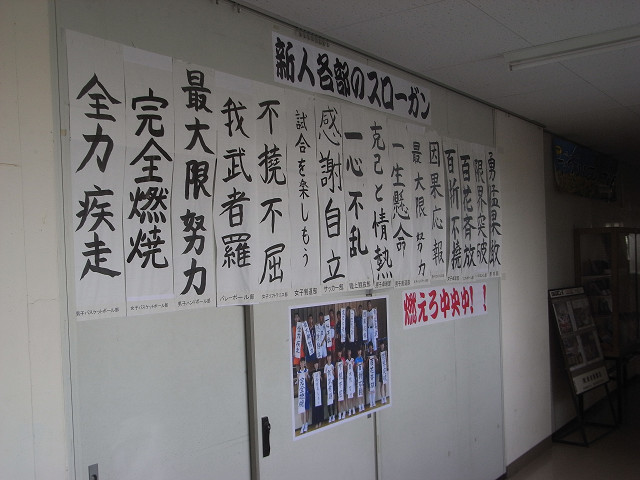 新人各部のスローガン
全力疾走
男子バスケットボール部
完全燃焼
女子バスケットボール部
最大限努力
男子ハンドボール部
我武者羅
バレーボール部
不撓不屈
感謝自立
サッカー部
試合を楽しもう
女子剣道部
一心不乱
陸上競技部
克己と情熱
一生懸命
最大限努力
因果応報
百折不撓
百花斉放
限界突破
勇猛果敢
燃えろ中央中！！